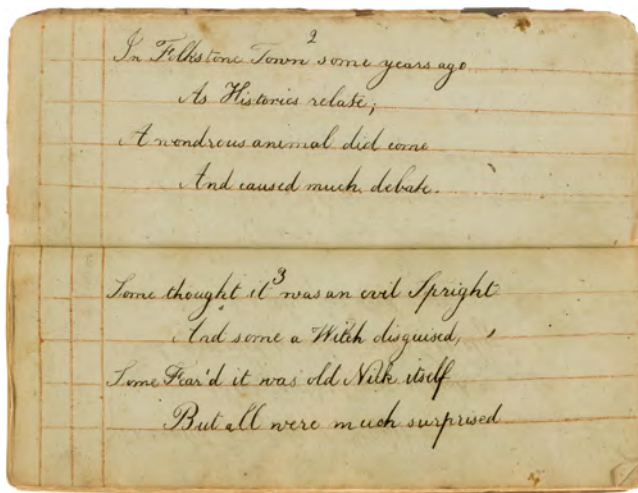 2
In Folkstone Town some years ago
As Histories relate;
A wondrous animal did come
And caused much debate.
3
Some thought it was an evil Spright
And some a Witch disguised,
Some Fear'd it was old Nick itself
But all were much surprised